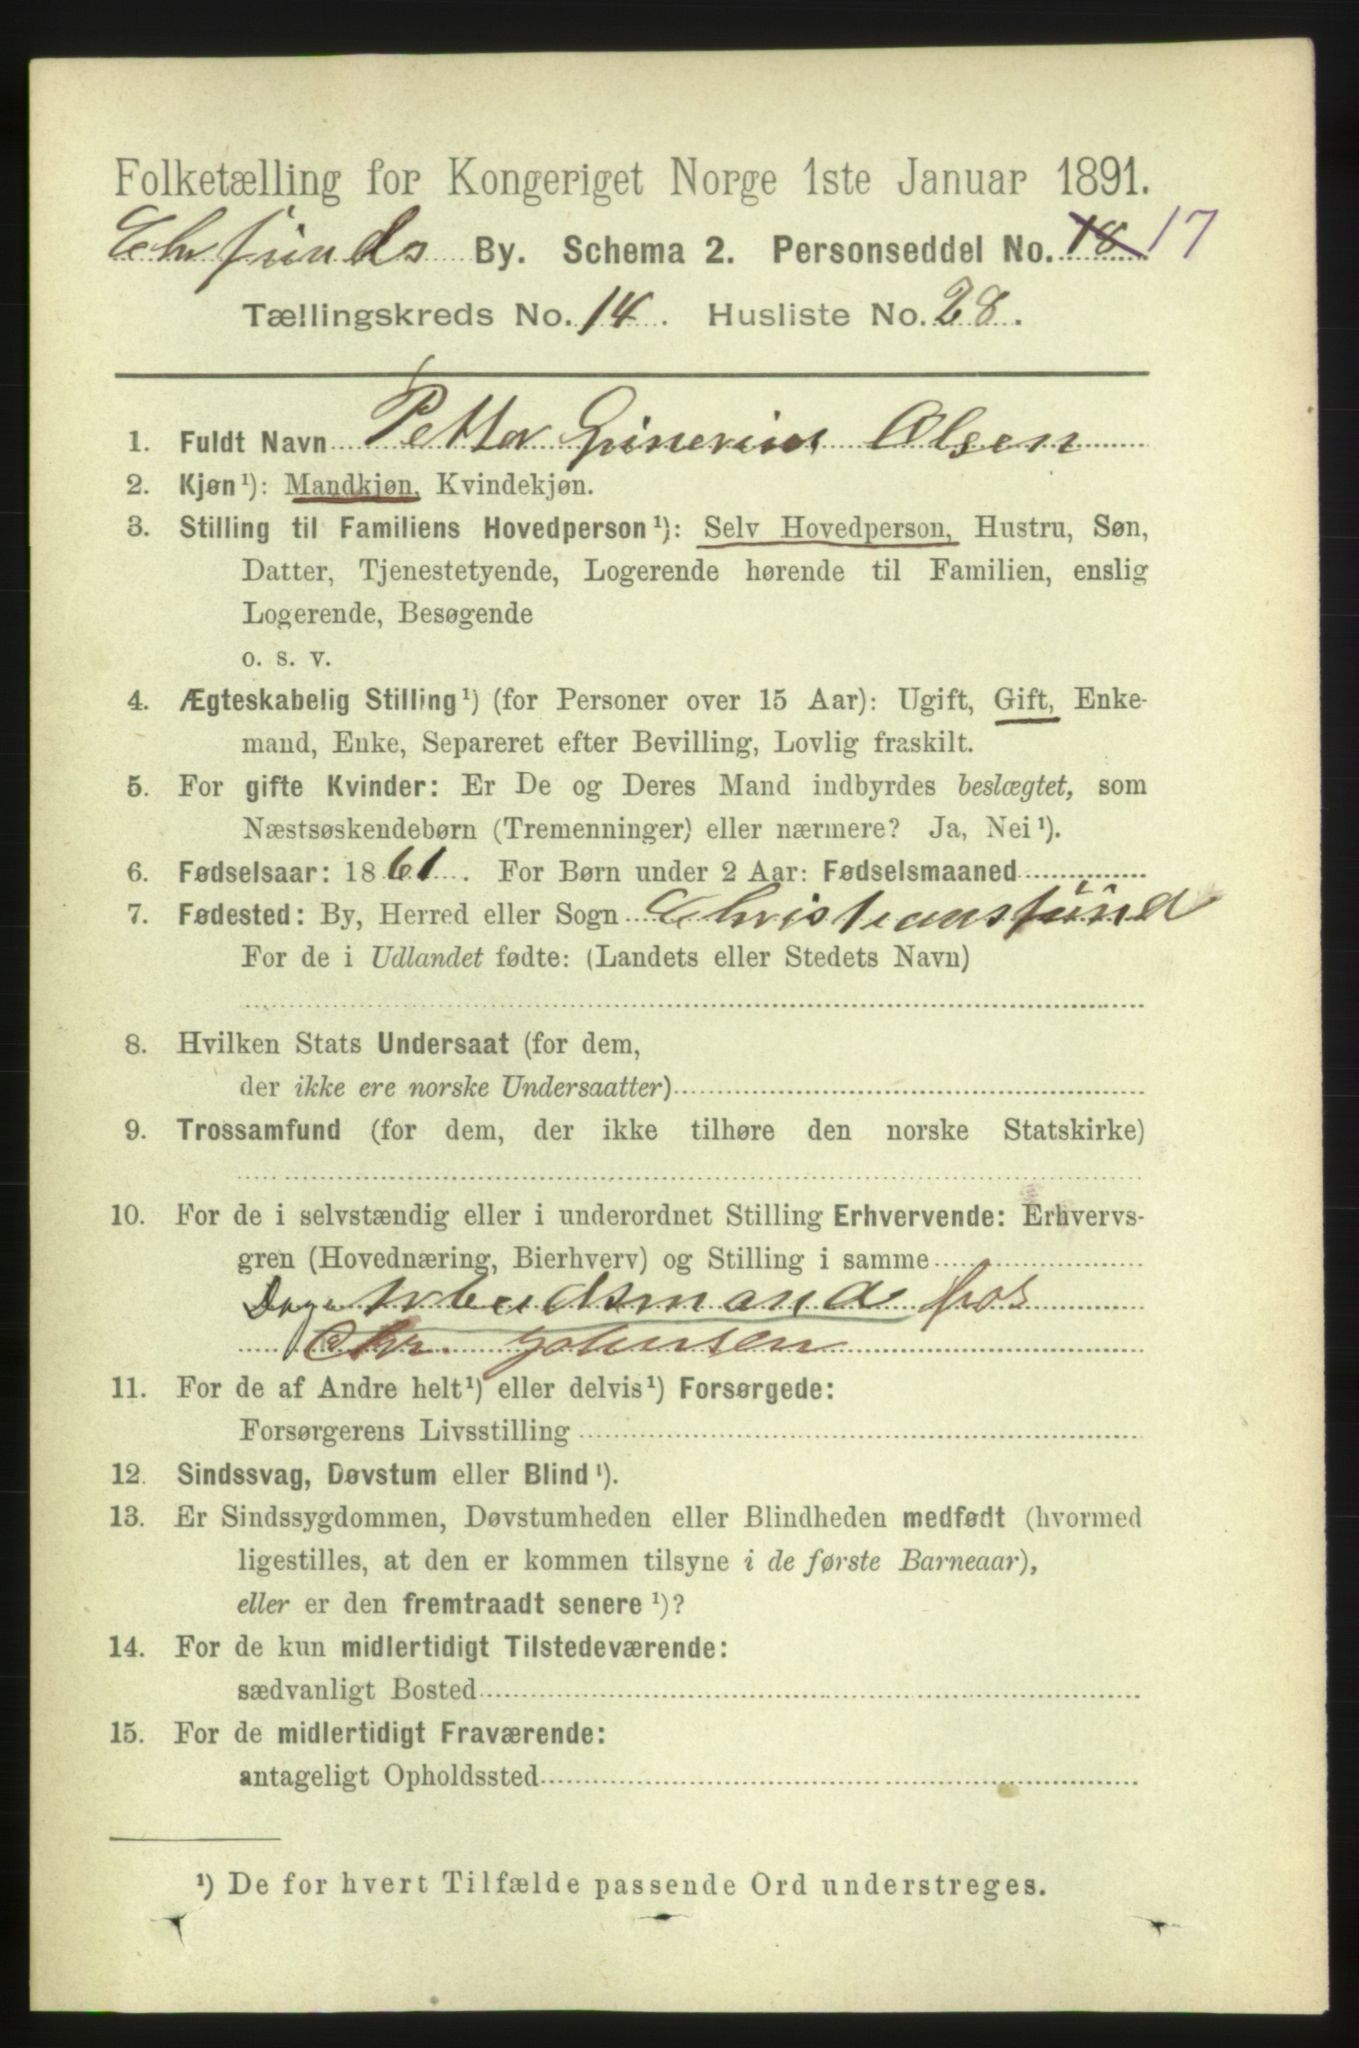 Folketælling for Kongeriget Norge 1ste Januar 1891.
Chrsunds By. Schema 2. Personseddel No. 18 17
Tællingskreds No. 14. Husliste No. 28.
1. Fuldt Navn Petter Olsen
2. Kjøn¹): Mandkjøn, Kvindekjøn.
3. Stilling til Familiens Hovedperson¹): Selv Hovedperson, Hustru, Søn,
Datter, Tjenestetyende, Logerende hørende til Familien, enslig
Logerende, Besøgende
o. s. v.
4. Ægteskabelig Stilling¹) (for Personer over 15 Aar): Ugift, Gift, Enke-
mand, Enke, Separeret efter Bevilling, Lovlig fraskilt.
5. For gifte Kvinder: Er De og Deres Mand indbyrdes beslægtet, som
Næstsøskendebørn (Tremenninger) eller nærmere? Ja, Nei¹).
6. Fødselsaar: 1861. For Børn under 2 Aar: Fødselsmaaned
7. Fødested: By, Herred eller Sogn Christianssund
For de i Udlandet fødte: (Landets eller Stedets Navn)
8. Hvilken Stats Undersaat (for dem,
der ikke ere norske Undersaatter)
9. Trossamfund (for dem, der ikke tilhøre den norske Statskirke)
10. For de i selvstændig eller i underordnet Stilling Erhvervende: Erhvervs-
gren (Hovednæring, Bierhverv) og Stilling i samme
Arbeidsmand hos
Chr. Johnsen
11. For de af Andre helt¹) eller delvis¹) Forsørgede:
Forsørgerens Livsstilling
12. Sindssvag, Døvstum eller Blind¹).
13. Er Sindssygdommen, Døvstumheden eller Blindheden medfødt (hvormed
ligestilles, at den er kommen tilsyne i de første Barneaar),
eller er den fremtraadt senere¹)?
14. For de kun midlertidigt Tilstedeværende:
sædvanligt Bosted
15. For de midlertidigt Fraværende:
antageligt Opholdssted
¹) De for hvert Tilfælde passende Ord understreges.